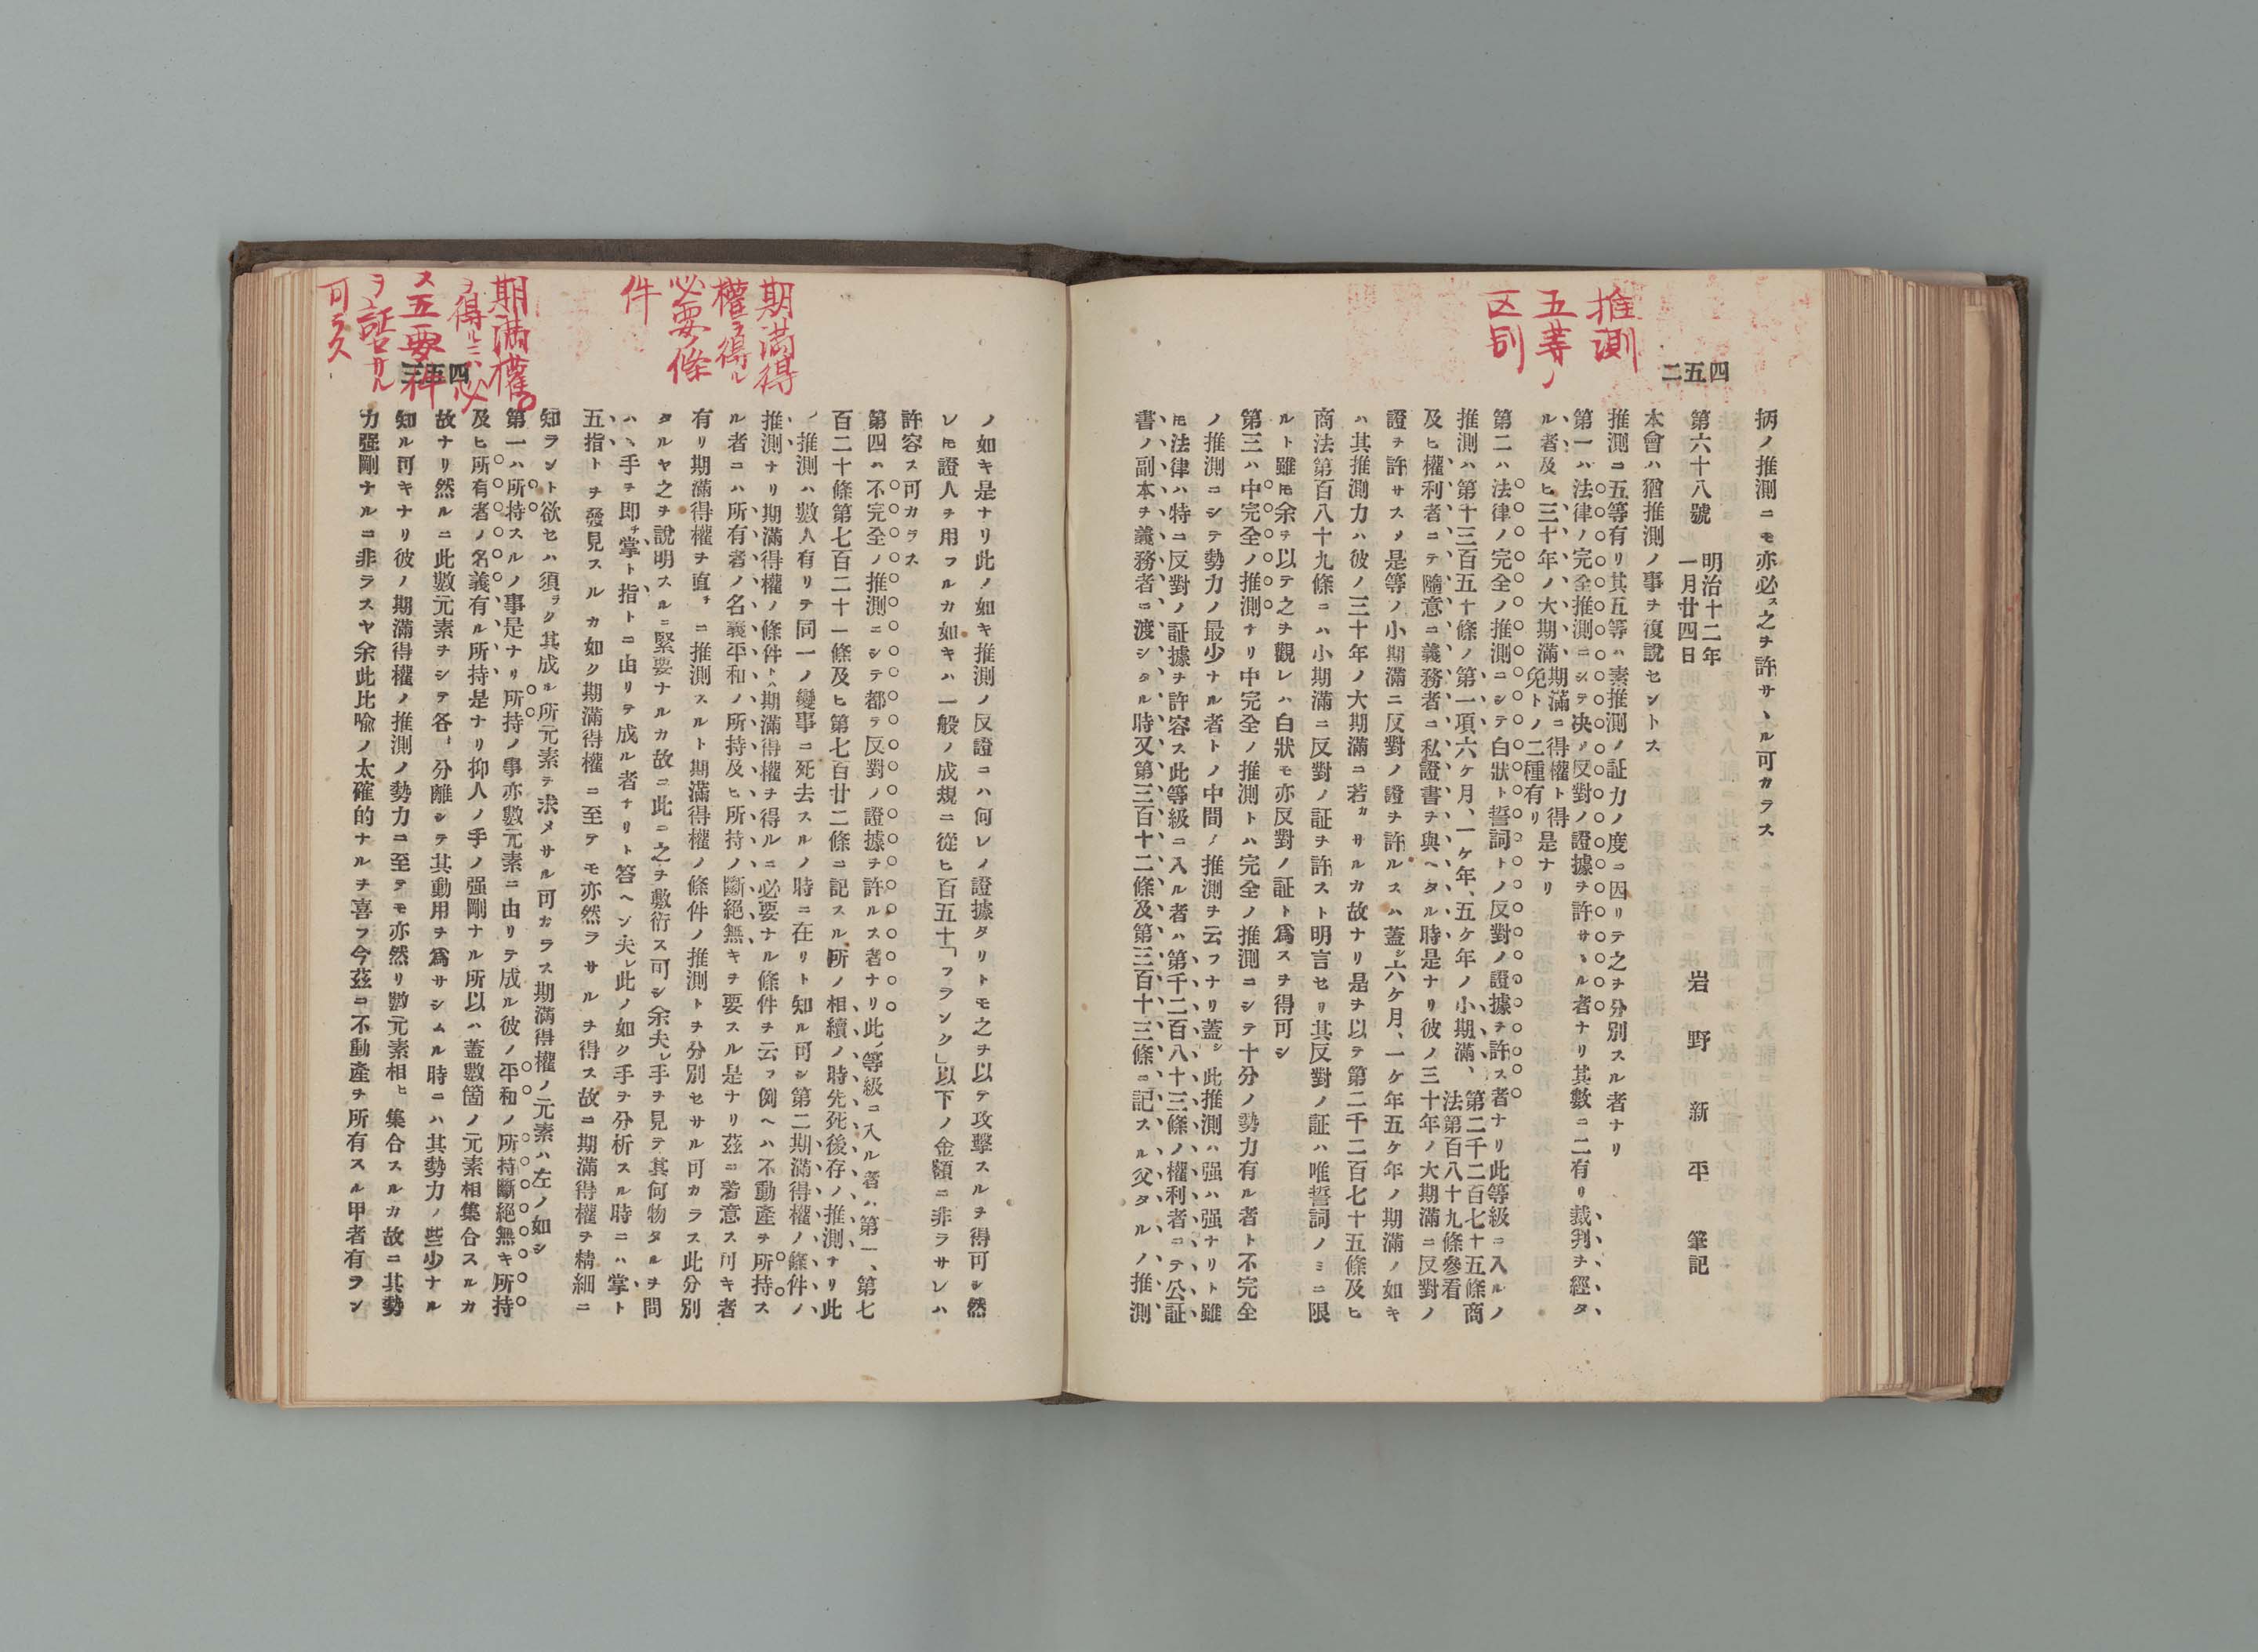 推測
五等ノ
区別
四五二
抦ノ推測ニモ亦必ス之ヲ許サヽル可カラス
第六十八號 明治十二年
一月廿四日 岩野新平 筆記
本會ハ猶推測ノ事ヲ復說セントス
推測ニ五等有リ其五等ハ素推測ノ証力ノ度ニ因リテ之ヲ分別スル者ナリ
第一ハ法律ノ完全推測ニシテ决メ反對ノ證據ヲ許サヽル者ナリ其數ニ二有リ裁判ヲ經タ
ル者及ヒ三十年ノ大期滿 期滿ニ得權ト得
免トノ二種有リ 是ナリ
第二ハ法律ノ完全ノ推測ニシテ白狀ト誓詞トノ反對ノ證據ヲ許ス者ナリ此等級ニ入ルノ
推測ハ第十三百五十條ノ第一項六ケ月、一ケ年、五ケ年ノ小期滿、 第二千二百七十五條商
法第百八十九條參看
及ヒ權利者ニテ隨意ニ義務者ニ私證書ヲ與ヘタル時是ナリ彼ノ三十年ノ大期滿ニ反對ノ
證ヲ許サスメ是等ノ小期滿ニ反對ノ證ヲ許ルスハ蓋シ六ケ月、一ケ年五ケ年ノ期滿ノ如キ
ハ其推測力ハ彼ノ三十年ノ大期滿ニ若カサルカ故ナリ是ヲ以テ第二千二百七十五條及ヒ
商法第百八十九條ニハ小期滿ニ反對ノ証ヲ許スト明言セリ其反對ノ証ハ唯誓詞ノミニ限
ルト雖𪜈余ヲ以テ之ヲ觀レハ白狀モ亦反對ノ証ト爲スヲ得可シ
第三ハ中完全ノ推測ナリ中完全ノ推測トハ完全ノ推測ニシテ十分ノ勢力有ル者ト不完全
ノ推測ニシテ勢力ノ最少ナル者トノ中間ノ推測ヲ云フナリ蓋シ此推測ハ强ハ强ナリト雖
𪜈法律ハ特ニ反對ノ証據ヲ許容ス此等級ニ入ル者ハ第千二百八十三條ノ權利者ニテ公証
書ノ副本ヲ義務者ニ渡シタル時又第三百十二條及第三百十三條ニ記スル父タルノ推測
期滿得
權ヲ得ル
必要條
件
期滿權
ヲ得ルニハ必
ス五要件
ヲ証セサル
可ラス
四五三
ノ如キ是ナリ此ノ如キ推測ノ反證ニハ何レノ證據タリトモ之ヲ以テ攻擊スルヲ得可シ然
レ𪜈證人ヲ用フルカ如キハ一般ノ成規ニ從ヒ百五十「フランク」以下ノ金額ニ非ラサレハ
許容ス可カラス
第四ハ不完全ノ推測ニシテ都テ反對ノ證據ヲ許ルス者ナリ此ノ等級ニ入ル者ハ第一、第七
百二十條第七百二十一條及ヒ第七百廿二條ニ記スル所ノ相續ノ時先死後存ノ推測ナリ此
ノ推測ハ數人有リテ同一ノ變事ニ死去スルノ時ニ在リト知ル可シ第二期滿得權ノ條件ノ
推測ナリ期滿得權ノ條件トハ期滿得權ヲ得ルニ必要ナル條件ヲ云フ例ヘハ不動產ヲ所持ス
ル者ニハ所有者ノ名義平和ノ所持及ヒ所持ノ斷絕無キヲ要スル是ナリ茲ニ着意ス可キ者
有リ期滿得權ヲ直チニ推測スルト期滿得權ノ條件ノ推測トヲ分別セサル可カラス此分別
タルヤ之ヲ說明スルニ緊要ナルカ故ニ此ニ之ヲ敷衍ス可シ余夫レ手ヲ見テ其何物タルヲ問
ハヽ手ヲ即チ掌ト指トニ由リテ成ル者ナリト答ヘン夫レ此ノ如ク手ヲ分析スル時ニハ掌ト
五指トヲ發見スルカ如ク期滿得權ニ至テモ亦然ラサルヲ得ス故ニ期滿得權ヲ精細ニ
知ラント欲セハ須ラク其成ル所元素ヲ求メサル可カラス期滿得權ノ元素ハ左ノ如シ
第一ハ所持スルノ事是ナリ所持ノ事亦數元素ニ由リテ成ル彼ノ平和ノ所持斷絕無キ所持
及ヒ所有者ノ名義有ル所持是ナリ抑人ノ手ノ强剛ナル所以ハ蓋數箇ノ元素相集合スルカ
故ナリ然ルニ此數元素ヲシテ各〻分離シテ其動用ヲ爲サシムル時ニハ其勢力ノ些少ナル
知ル可キナリ彼ノ期滿得權ノ推測ノ勢力ニ至テモ亦然リ數元素相ヒ集合スルカ故ニ其勢
力强剛ナルニ非ラスヤ余此比喩ノ太確的ナルヲ喜フ今茲ニ不動產ヲ所有スル甲者有ラン